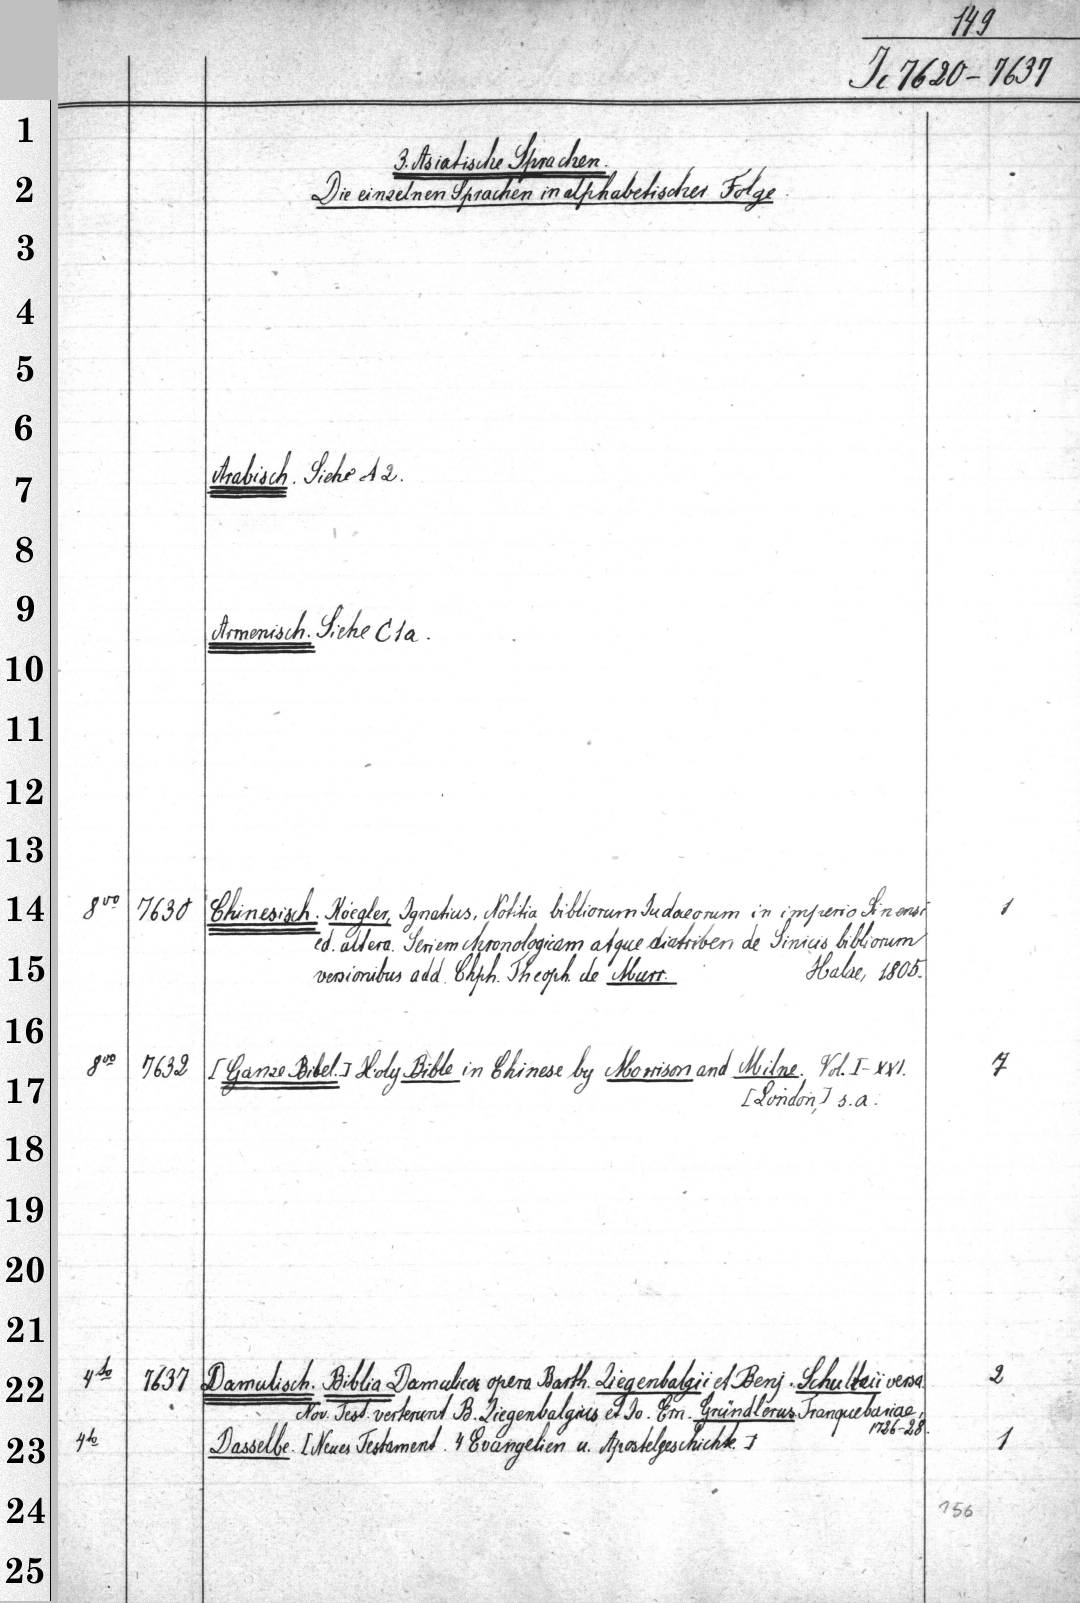 149
Ic 7620-7637
1
3. Asiatische Sprachen.
2
Die einzelnen Sprachen in alphabetischer Folge.
3
4
5
6
7
Arabisch. Siehe A 2.
8
9
Armenisch. Siehe C1a.
10
11
12
13
14
8vo 7630 Chinesisch. Koegler, Ignatius, Notitia bibliorum Judaeorum in imperio Sinensi 1
ed. altera. Seriem chronologicam atque diatriben de Sinicis bibliorum
15
versionibus add. Chph. Theoph. de Murr. Halae, 1805.
16
8vo 7632 [Ganze Bibel.] Holy Bible in Chinese by Morrison and Milne. Vol. I-XXI. 7
17
[London,] s.a.
18
19
20
21
22
4to 7637 Damulisch. Biblia Damulica opera Barth. Ziegenbalgii et Benj. Schultzii versa 2
Nov. Test. verterunt B. Ziegenbalgius et Jo. Ern. Gründlerus Tranquebariae,
1726-28.
23
4to Dasselbe. [Neues Testament. 4 Evangelien u. Apostelgeschichte.] 1
24
156
25